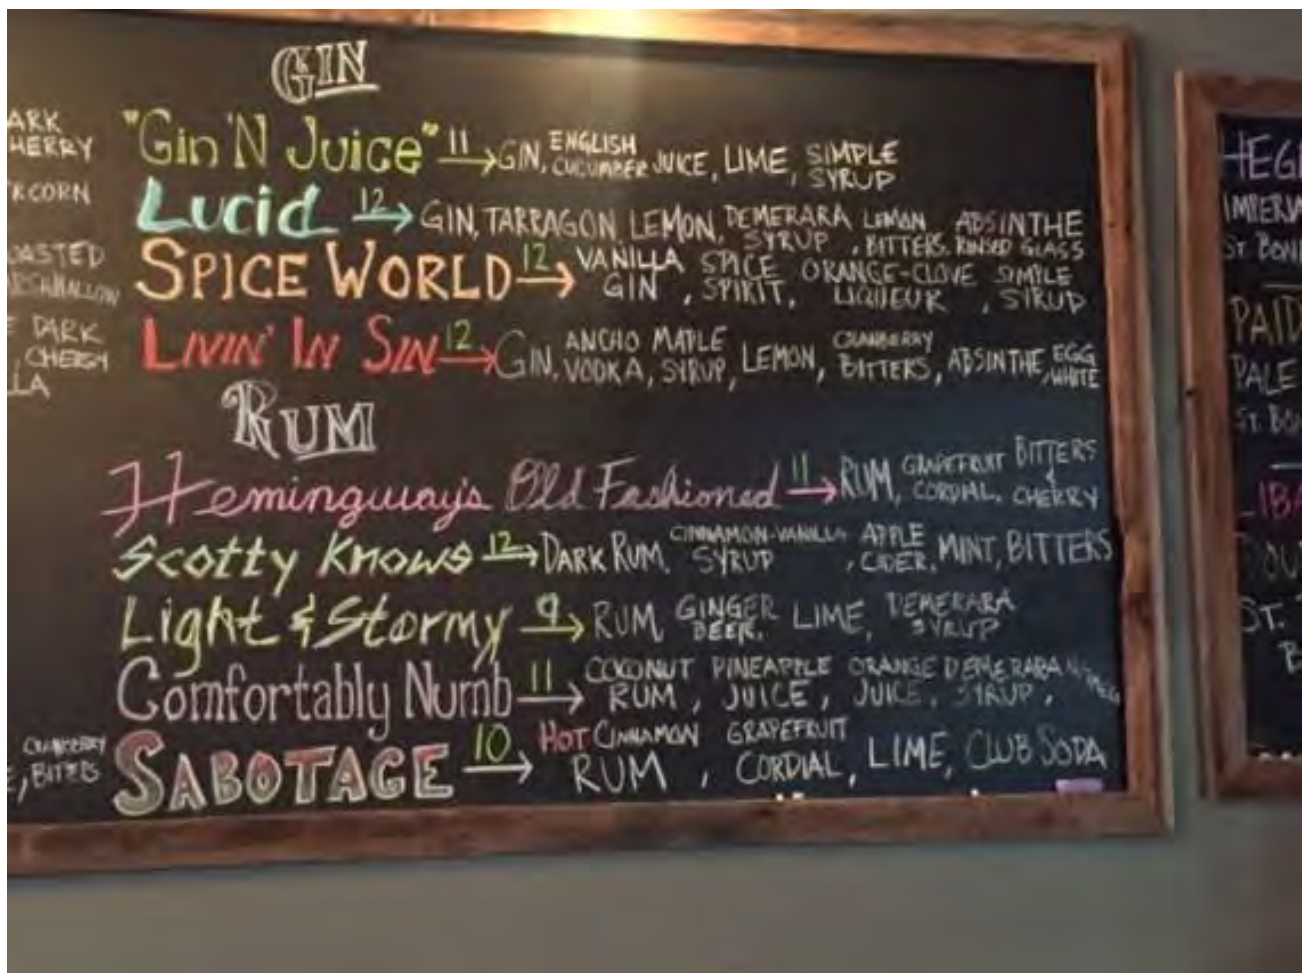 GIN
"Gin 'N Juice" 11 GIN, ENGLISH CUCUMBER JUICE, LIME, SIMPLE SYRUP
Lucid 12 GIN, TARRAGON, LEMON, DEMERARA SYRUP, LEMON BITTERS, ABSINTHE RINSED GLASS
SPICE WORLD 12 VANILLA GIN, SPICE SPIRIT, ORANGE-CLOVE LIQUEUR, SIMPLE SYRUP
LIVIN' IN SIN 12 GIN, ANCHO VODKA, MAPLE SYRUP, LEMON, CRANBERRY BITTERS, ABSINTHE, EGG WHITE
RUM
Hemingway's Old Fashioned 11 RUM, GRAPEFRUIT CORDIAL, BITTERS, CHERRY
Scotty Knows 12 DARK RUM, CINNAMON-VANILLA SYRUP, APPLE CIDER, MINT, BITTERS
Light & Stormy 9 RUM, GINGER BEER, LIME, DEMERARA SYRUP
Comfortably Numb 11 COCONUT RUM, PINEAPPLE JUICE, ORANGE JUICE, DEMERARA SYRUP, NUTMEG
SABOTAGE 10 HOT CINNAMON RUM, GRAPEFRUIT CORDIAL, LIME, CLUB SODA
ARK
HERRY
CORN
OASTED
DARK
CHERRY
LLA
CRANBERRY
BITTERS
HEGE
IMPERIA
ST. BON
PAID
PALE
ST. BO
LIBA
DOU
ST.
B